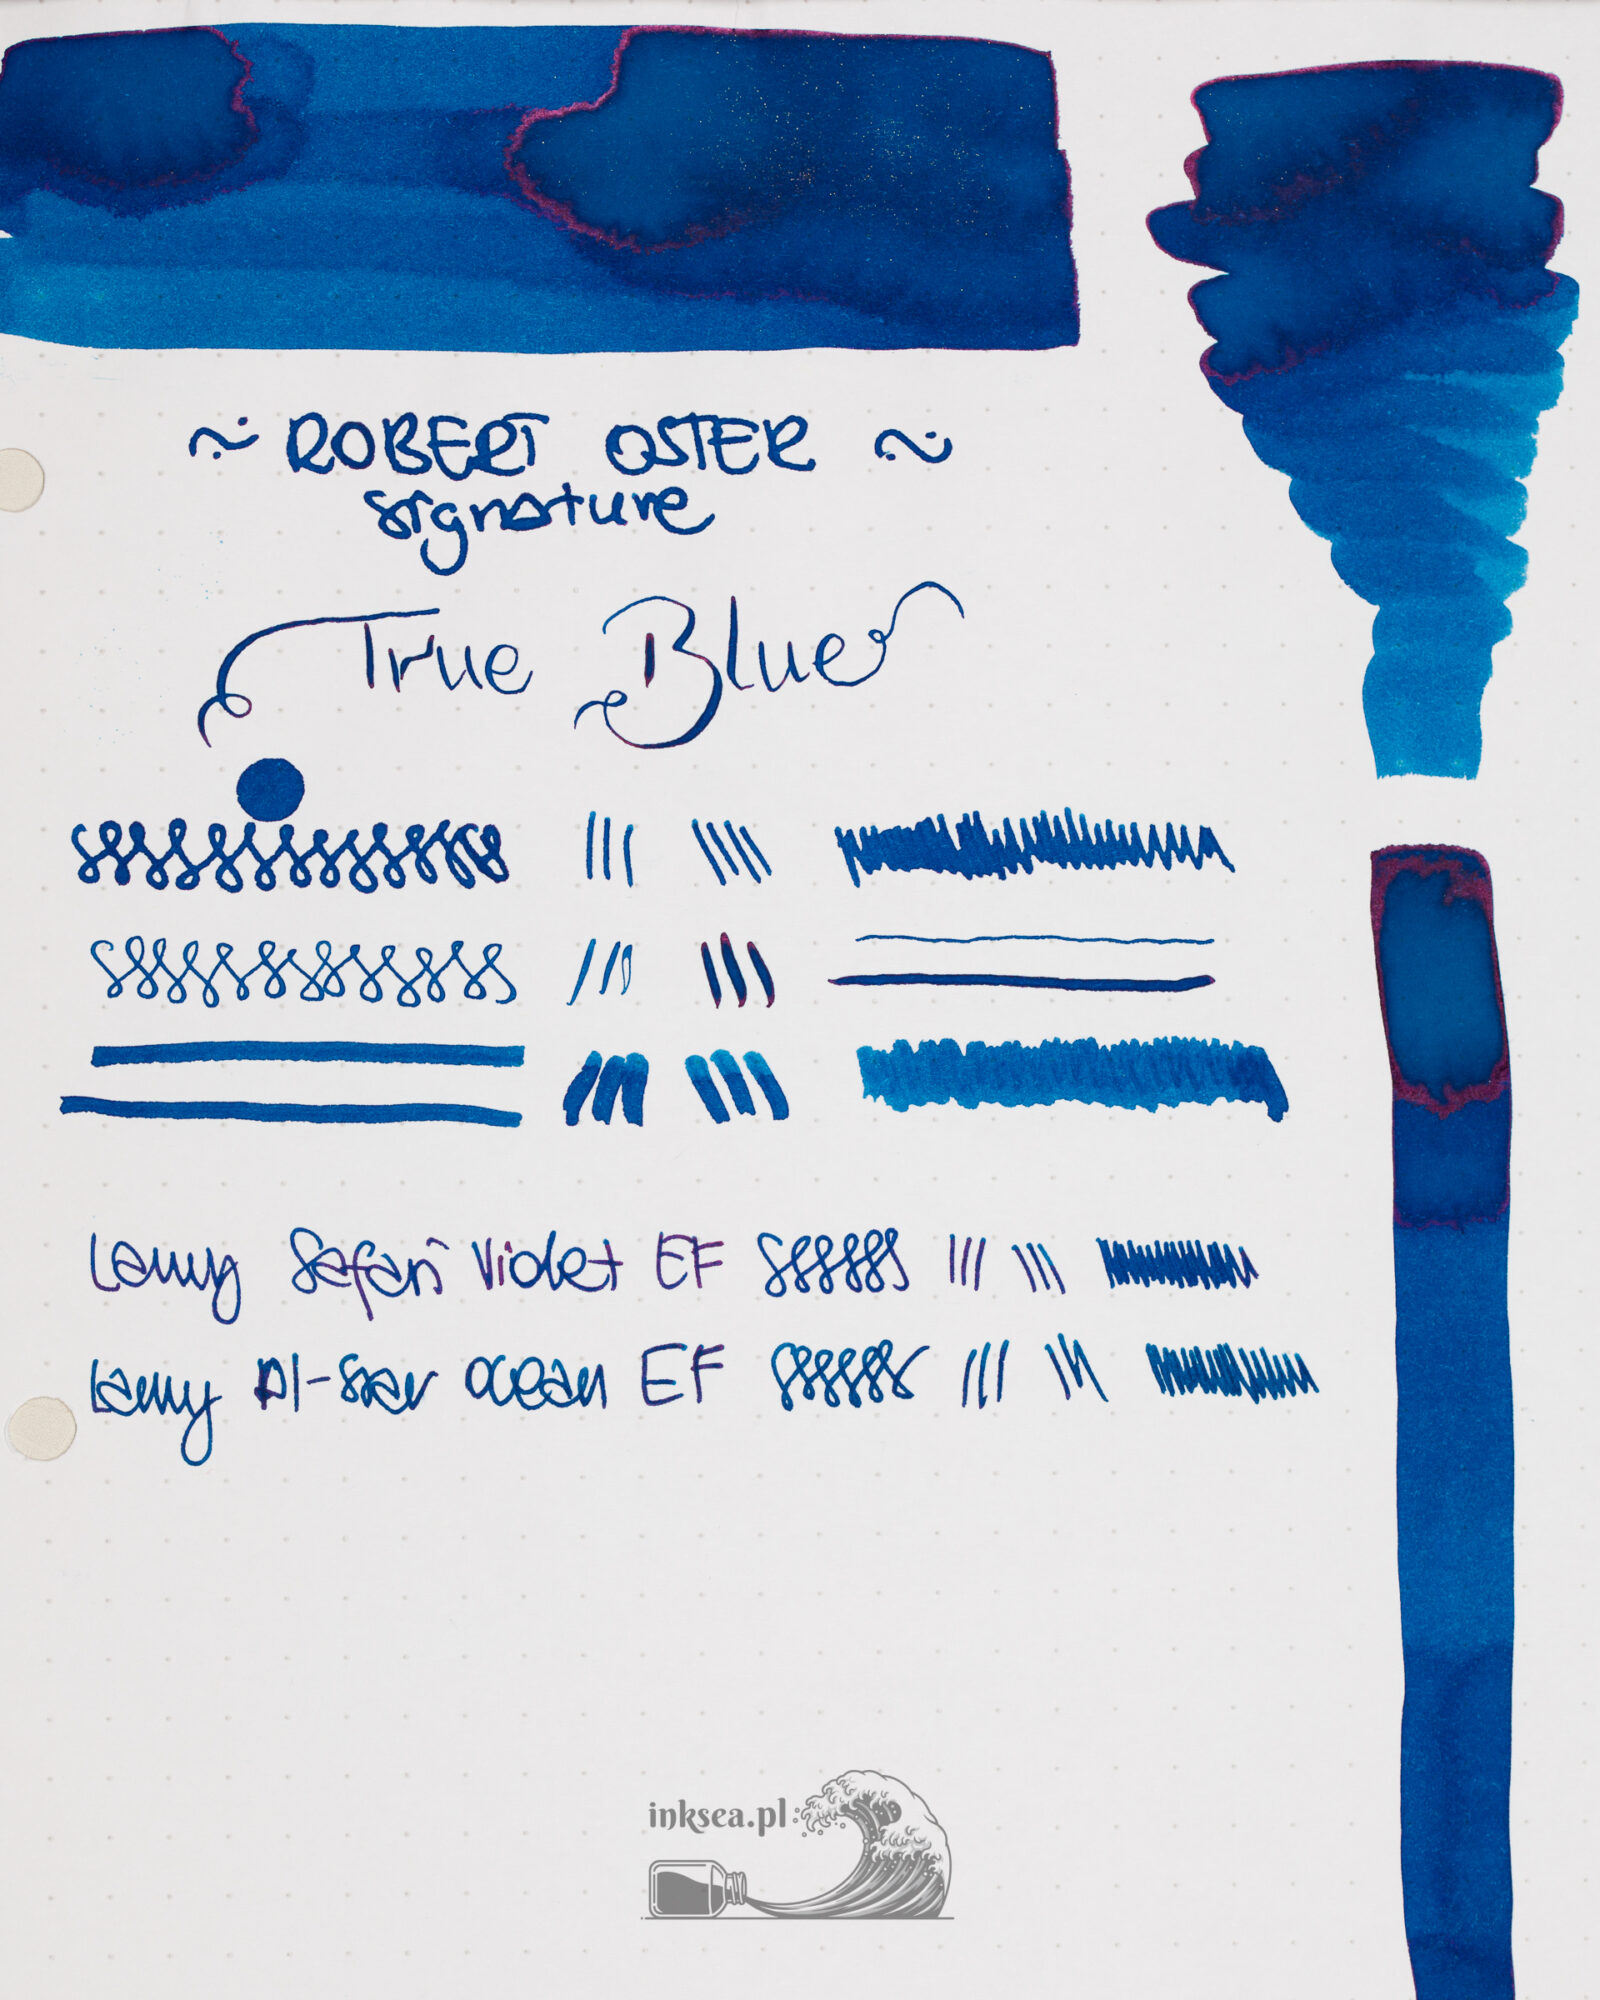 ~ ROBERT OSTER ~
signature
True Blue
Lamy Safari Violet EF
Lamy Al-star Ocean EF
inksea.pl